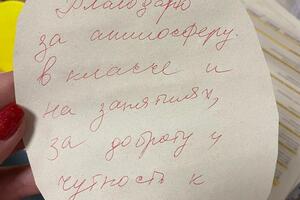 Благодарю
за атмосферу
в классе и
на занятиях,
за доброту и
чуткость к